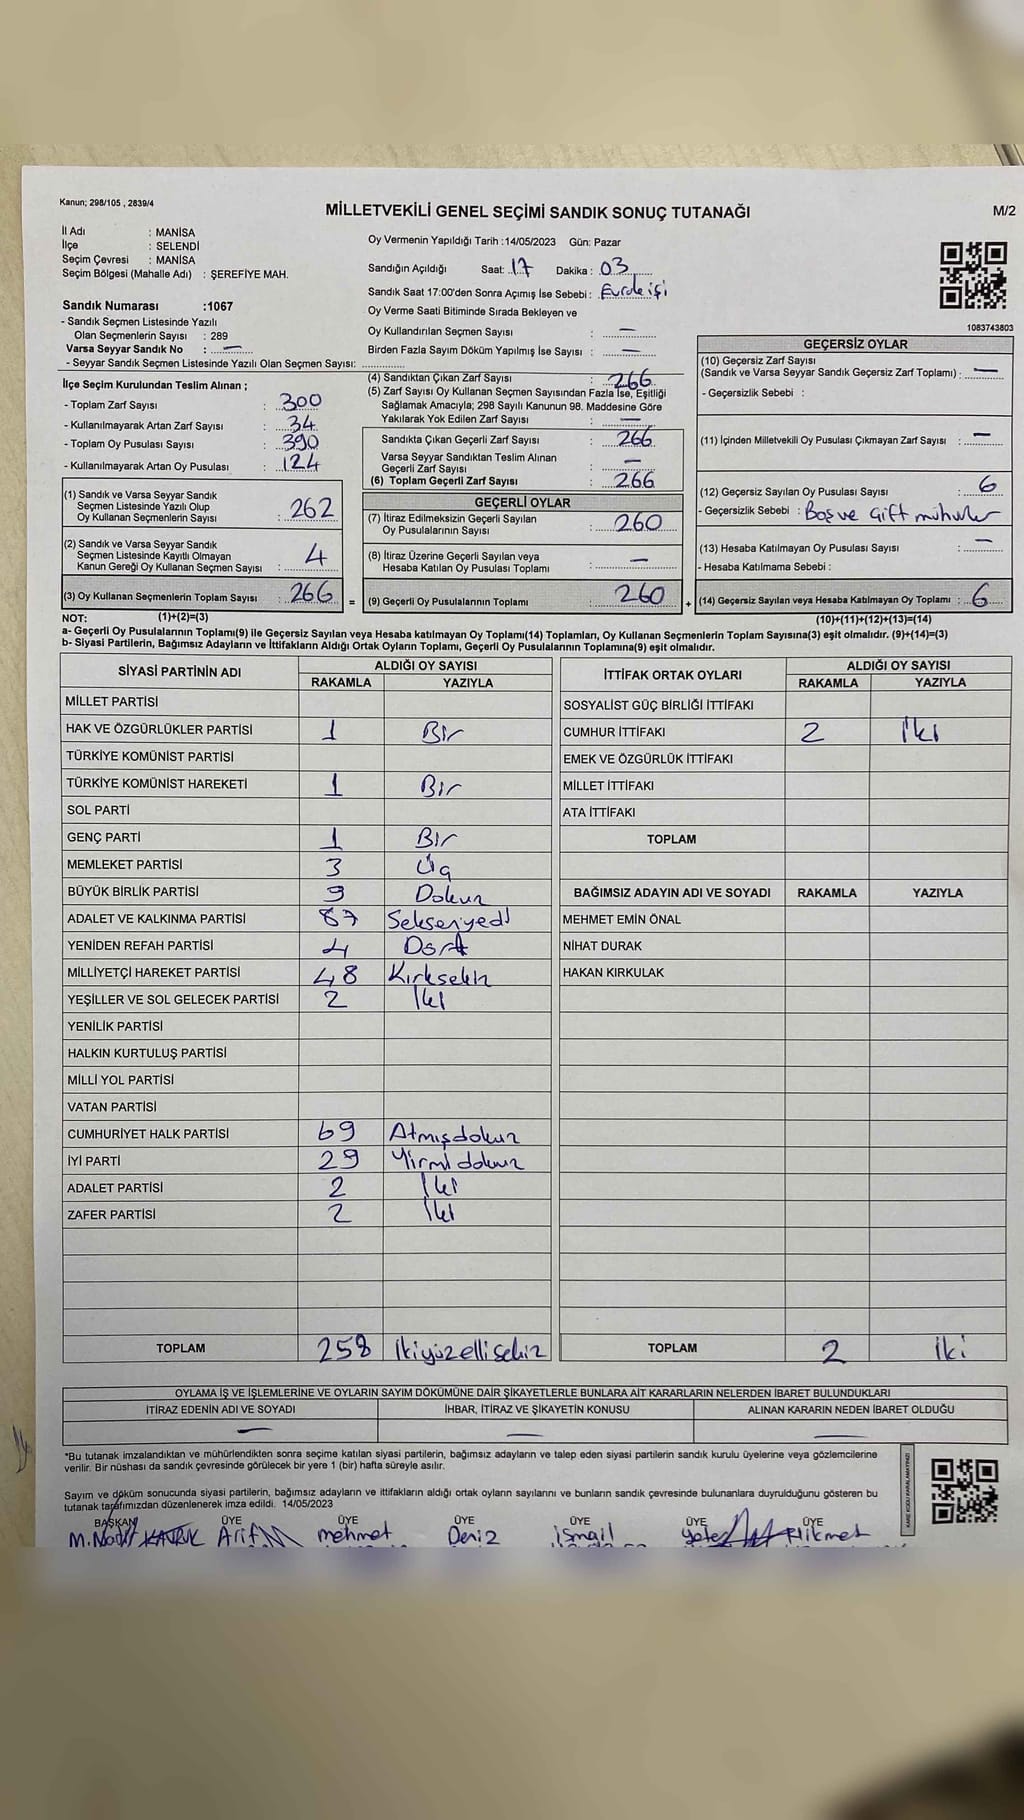 Kanun; 298/105 , 2839/4
MİLLETVEKİLİ GENEL SEÇİMİ SANDIK SONUÇ TUTANAĞI
M/2
İl Adı : MANİSA
İlçe : SELENDİ
Seçim Çevresi : MANİSA
Seçim Bölgesi (Mahalle Adı) : ŞEREFİYE MAH.
Sandık Numarası :1067
- Sandık Seçmen Listesinde Yazılı
Olan Seçmenlerin Sayısı : 289
Varsa Seyyar Sandık No : —
- Seyyar Sandık Seçmen Listesinde Yazılı Olan Seçmen Sayısı:
Oy Vermenin Yapıldığı Tarih :14/05/2023 Gün: Pazar
Sandığın Açıldığı Saat: 17 Dakika : 03
Sandık Saat 17:00'den Sonra Açımış İse Sebebi :
Oy Verme Saati Bitiminde Sırada Bekleyen ve
Oy Kullandırılan Seçmen Sayısı : —
Birden Fazla Sayım Döküm Yapılmış İse Sayısı : —
1083743803
İlçe Seçim Kurulundan Teslim Alınan ;
- Toplam Zarf Sayısı : 300
- Kullanılmayarak Artan Zarf Sayısı : 34
- Toplam Oy Pusulası Sayısı : 390
- Kullanılmayarak Artan Oy Pusulası : 124
(1) Sandık ve Varsa Seyyar Sandık
Seçmen Listesinde Yazılı Olup
Oy Kullanan Seçmenlerin Sayısı : 262
(2) Sandık ve Varsa Seyyar Sandık
Seçmen Listesinde Kayıtlı Olmayan
Kanun Gereği Oy Kullanan Seçmen Sayısı : 4
(3) Oy Kullanan Seçmenlerin Toplam Sayısı : 266 =
(4) Sandıktan Çıkan Zarf Sayısı : 266
(5) Zarf Sayısı Oy Kullanan Seçmen Sayısından Fazla İse, Eşitliği
Sağlamak Amacıyla; 298 Sayılı Kanunun 98. Maddesine Göre
Yakılarak Yok Edilen Zarf Sayısı : —
Sandıkta Çıkan Geçerli Zarf Sayısı : 266
Varsa Seyyar Sandıktan Teslim Alınan
Geçerli Zarf Sayısı : —
(6) Toplam Geçerli Zarf Sayısı : 266
GEÇERLİ OYLAR
(7) İtiraz Edilmeksizin Geçerli Sayılan
Oy Pusulalarının Sayısı : 260
(8) İtiraz Üzerine Geçerli Sayılan veya
Hesaba Katılan Oy Pusulası Toplamı : —
(9) Geçerli Oy Pusulalarının Toplamı : 260 +
GEÇERSİZ OYLAR
(10) Geçersiz Zarf Sayısı
(Sandık ve Varsa Seyyar Sandık Geçersiz Zarf Toplamı) : —
- Geçersizlik Sebebi :
(11) İçinden Milletvekili Oy Pusulası Çıkmayan Zarf Sayısı : —
(12) Geçersiz Sayılan Oy Pusulası Sayısı : 6
- Geçersizlik Sebebi : Boş ve Çift mühürler
(13) Hesaba Katılmayan Oy Pusulası Sayısı : —
- Hesaba Katılmama Sebebi :
(14) Geçersiz Sayılan veya Hesaba Katılmayan Oy Toplamı : 6
NOT: (1)+(2)=(3) (10)+(11)+(12)+(13)=(14)
a- Geçerli Oy Pusulalarının Toplamı(9) ile Geçersiz Sayılan veya Hesaba katılmayan Oy Toplamı(14) Toplamları, Oy Kullanan Seçmenlerin Toplam Sayısına(3) eşit olmalıdır. (9)+(14)=(3)
b- Siyasi Partilerin, Bağımsız Adayların ve İttifakların Aldığı Ortak Oyların Toplamı, Geçerli Oy Pusulalarının Toplamına(9) eşit olmalıdır.
SİYASİ PARTİNİN ADI ALDIĞI OY SAYISI
RAKAMLA YAZIYLA
MİLLET PARTİSİ
HAK VE ÖZGÜRLÜKLER PARTİSİ 1 Bir
TÜRKİYE KOMÜNİST PARTİSİ
TÜRKİYE KOMÜNİST HAREKETİ 1 Bir
SOL PARTİ
GENÇ PARTİ 1 Bir
MEMLEKET PARTİSİ 3 Üç
BÜYÜK BİRLİK PARTİSİ 9 Dokuz
ADALET VE KALKINMA PARTİSİ 87 Seksenyedi
YENİDEN REFAH PARTİSİ 4 Dört
MİLLİYETÇİ HAREKET PARTİSİ 48 Kırksekiz
YEŞİLLER VE SOL GELECEK PARTİSİ 2 İki
YENİLİK PARTİSİ
HALKIN KURTULUŞ PARTİSİ
MİLLİ YOL PARTİSİ
VATAN PARTİSİ
CUMHURİYET HALK PARTİSİ 69 Atmışdokuz
İYİ PARTİ 29 Yirmidokuz
ADALET PARTİSİ 2 İki
ZAFER PARTİSİ 2 İki
TOPLAM 258 İkiyüzellisekiz
İTTİFAK ORTAK OYLARI ALDIĞI OY SAYISI
RAKAMLA YAZIYLA
SOSYALİST GÜÇ BİRLİĞİ İTTİFAKI
CUMHUR İTTİFAKI 2 İki
EMEK VE ÖZGÜRLÜK İTTİFAKI
MİLLET İTTİFAKI
ATA İTTİFAKI
TOPLAM
BAĞIMSIZ ADAYIN ADI VE SOYADI RAKAMLA YAZIYLA
MEHMET EMİN ÖNAL
NİHAT DURAK
HAKAN KIRKULAK
TOPLAM 2 İki
OYLAMA İŞ VE İŞLEMLERİNE VE OYLARIN SAYIM DÖKÜMÜNE DAİR ŞİKAYETLERLE BUNLARA AİT KARARLARIN NELERDEN İBARET BULUNDUKLARI
İTİRAZ EDENİN ADI VE SOYADI İHBAR, İTİRAZ VE ŞİKAYETİN KONUSU ALINAN KARARIN NEDEN İBARET OLDUĞU
— — —
*Bu tutanak imzalandıktan ve mühürlendikten sonra seçime katılan siyasi partilerin, bağımsız adayların ve talep eden siyasi partilerin sandık kurulu üyelerine veya gözlemcilerine
verilir. Bir nüshası da sandık çevresinde görülecek bir yere 1 (bir) hafta süreyle asılır.
Sayım ve döküm sonucunda siyasi partilerin, bağımsız adayların ve ittifakların aldığı ortak oyların sayılarını ve bunların sandık çevresinde bulunanlara duyrulduğunu gösteren bu
tutanak tarafımızdan düzenlenerek imza edildi. 14/05/2023
KARE KODU KARALAMAYINIZ!
BAŞKAN ÜYE ÜYE ÜYE ÜYE ÜYE ÜYE
Arif mehmet Deniz ismail Hikmet